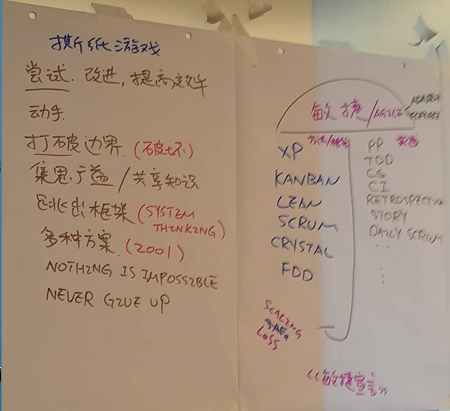 撕纸游戏
尝试. 改进, 提高效率
动手
打破边界. (破坏)
集思广益 / 共享知识
跳出框架 (SYSTEM
THINKING)
多种方案. (2001)
NOTHING IS IMPOSSIBLE
NEVER GIVE UP
敏捷/AGILE
方法/
XP
KANBAN
LEAN
SCRUM
CRYSTAL
FDD
SCALING
SAFe
LeSS
实践
PP
TDD
CS
CI
RETROSPECTIVE
STORY
DAILY SCRUM
...
《敏捷宣言》